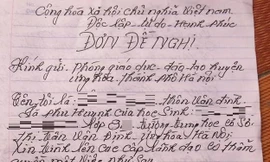 Cộng hòa xã hội chủ nghĩa việt nam
Độc lập - tự do - Hạnh Phúc
ĐƠN ĐỀ NGHỊ
Kính gửi: phòng giáo dục đào tạo huyện
ứng hòa. Thành phố Hà nội
Tên tôi là: thôn Vân đình
Là phụ Huynh của Học Sinh
Lớp trường trung học cơ Sở
Thị trấn Vân Đình ứng hòa Hà Nội
Xin trên các cấp Lãnh đạo có thẩm
quyền một việc như sau